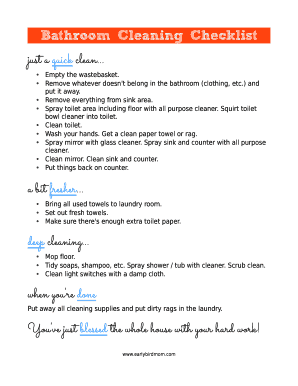 Bathroom Cleaning Checklist
just a quick clean...
• Empty the wastebasket.
• Remove whatever doesn't belong in the bathroom (clothing, etc.) and
put it away.
• Remove everything from sink area.
• Spray toilet area including floor with all purpose cleaner. Squirt toilet
bowl cleaner into toilet.
• Clean toilet.
• Wash your hands. Get a clean paper towel or rag.
• Spray mirror with glass cleaner. Spray sink and counter with all purpose
cleaner.
• Clean mirror. Clean sink and counter.
• Put things back on counter.
a bit fresher...
• Bring all used towels to laundry room.
• Set out fresh towels.
• Make sure there's enough extra toilet paper.
deep cleaning...
• Mop floor.
• Tidy soaps, shampoo, etc. Spray shower / tub with cleaner. Scrub clean.
• Clean light switches with a damp cloth.
when you're done
Put away all cleaning supplies and put dirty rags in the laundry.
You've just blessed the whole house with your hard work!
www.earlybirdmom.com